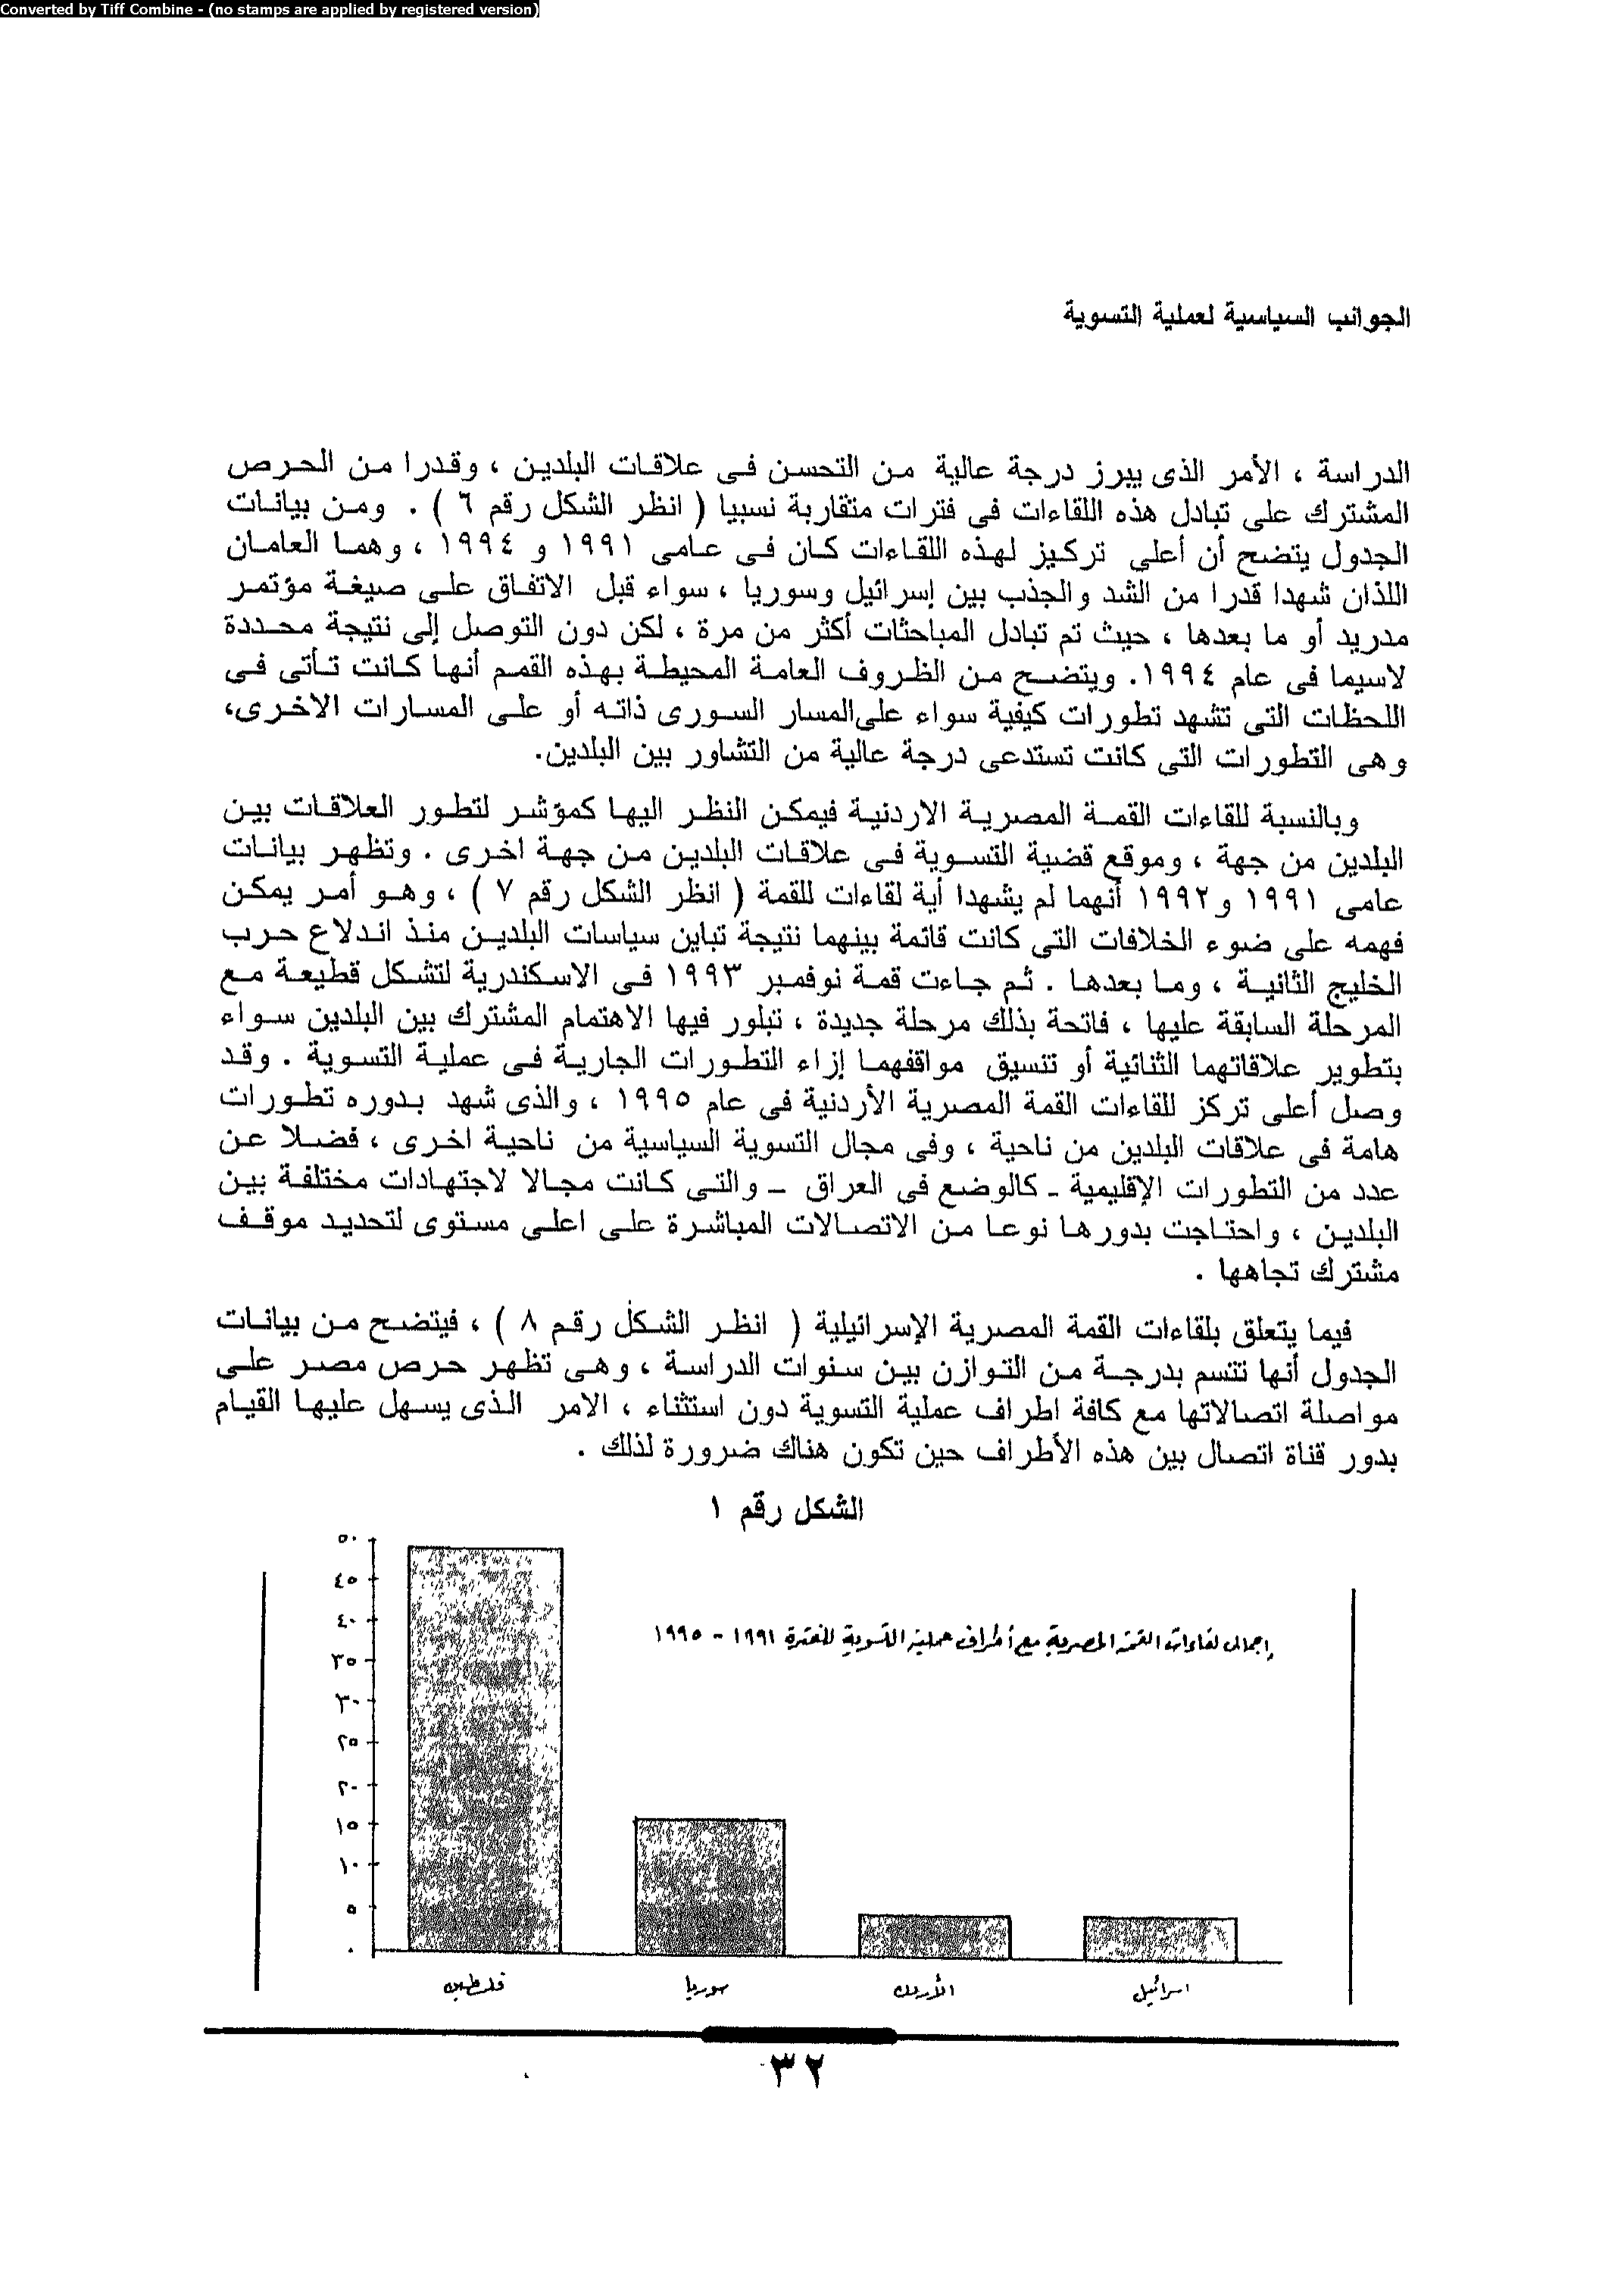 Converted by Tiff Combine - (no stamps are applied by registered version)
الجوانب السياسية لعملية التسوية
الدراسة ، الأمر الذى يبرز درجة عالية من التحسن فى علاقات البلدين ، وقدرا من الحرص
المشترك على تبادل هذه اللقاءات فى فترات متقاربة نسبيا ( انظر الشكل رقم ٦ ) . ومن بيانات
الجدول يتضح أن أعلى تركيز لهذه اللقاءات كان فى عامى ١٩٩١ و ١٩٩٤ ، وهما العامان
اللذان شهدا قدرا من الشد والجذب بين إسرائيل وسوريا ، سواء قبل الاتفاق على صيغة مؤتمر
مدريد أو ما بعدها ، حيث تم تبادل المباحثات أكثر من مرة ، لكن دون التوصل إلى نتيجة محددة
لاسيما فى عام ١٩٩٤. ويتضح من الظروف العامة المحيطة بهذه القمم أنها كانت تأتى فى
اللحظات التى تشهد تطورات كيفية سواء على المسار السورى ذاته أو على المسارات الاخرى،
وهى التطورات التى كانت تستدعى درجة عالية من التشاور بين البلدين.
وبالنسبة للقاءات القمة المصرية الاردنية فيمكن النظر اليها كمؤشر لتطور العلاقات بين
البلدين من جهة ، وموقع قضية التسوية فى علاقات البلدين من جهة اخرى . وتظهر بيانات
عامى ١٩٩١ و١٩٩٢ أنهما لم يشهدا أية لقاءات للقمة ( انظر الشكل رقم ٧ ) ، وهو أمر يمكن
فهمه على ضوء الخلافات التى كانت قائمة بينهما نتيجة تباين سياسات البلدين منذ اندلاع حرب
الخليج الثانية ، وما بعدها . ثم جاءت قمة نوفمبر ١٩٩٣ فى الاسكندرية لتشكل قطيعة مع
المرحلة السابقة عليها ، فاتحة بذلك مرحلة جديدة ، تبلور فيها الاهتمام المشترك بين البلدين سواء
بتطوير علاقاتهما الثنائية أو تنسيق مواقفهما إزاء التطورات الجارية فى عملية التسوية . وقد
وصل أعلى تركز للقاءات القمة المصرية الأردنية فى عام ١٩٩٥ ، والذى شهد بدوره تطورات
هامة فى علاقات البلدين من ناحية ، وفى مجال التسوية السياسية من ناحية اخرى ، فضلا عن
عدد من التطورات الإقليمية - كالوضع فى العراق - والتى كانت مجالا لاجتهادات مختلفة بين
البلدين ، واحتاجت بدورها نوعا من الاتصالات المباشرة على اعلى مستوى لتحديد موقف
مشترك تجاهها .
فيما يتعلق بلقاءات القمة المصرية الإسرائيلية ( انظر الشكل رقم ٨ ) ، فيتضح من بيانات
الجدول أنها تتسم بدرجة من التوازن بين سنوات الدراسة ، وهى تظهر حرص مصر على
مواصلة اتصالاتها مع كافة اطراف عملية التسوية دون استثناء ، الامر الذى يسهل عليها القيام
بدور قناة اتصال بين هذه الأطراف حين تكون هناك ضرورة لذلك .
الشكل رقم ١
٥٠
٤٥
٤٠
٣٥
٣٠
٢٥
٢٠
١٥
١٠
٥
٠
إجمالى لقاءات القمة المصرية مع أطراف عملية التسوية للفترة ١٩٩١ - ١٩٩٥
فلسطين
سوريا
الأردن
اسرائيل
٣٢